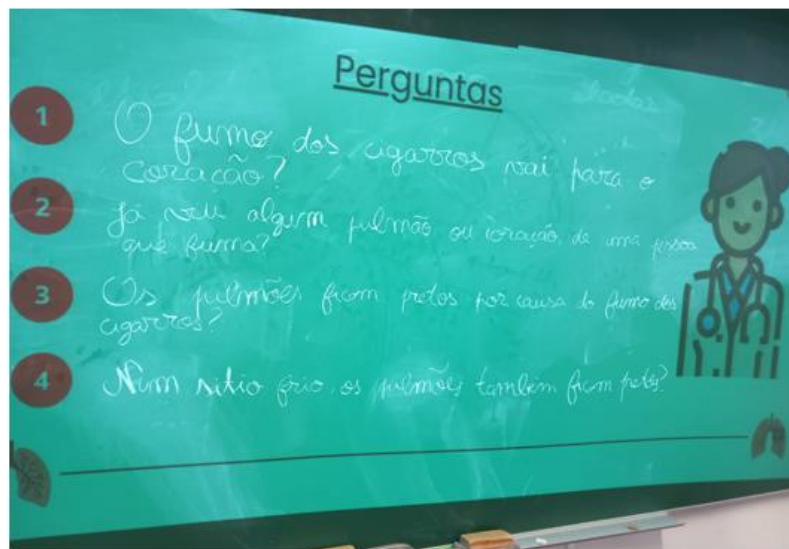 Perguntas
1
O fumo dos cigarros vai para o
coração?
2
Já viu algum pulmão ou coração de uma pessoa
que fuma?
3
Os pulmões ficam pretos por causa do fumo dos
cigarros?
4
Num sitio frio, os pulmões também ficam pretos?